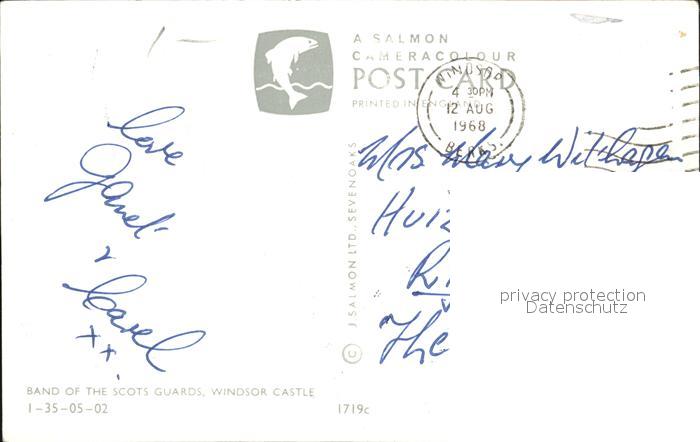 A SALMON
CAMERACOLOUR
POST CARD
PRINTED IN ENGLAND
WINDSOR
4 30PM
12 AUG
1968
BERKS.
love
Janet
&
Carel
++.
Mrs
Hui
R
The
privacy protection
Datenschutz
© J SALMON LTD., SEVENOAKS
BAND OF THE SCOTS GUARDS, WINDSOR CASTLE
1-35-05-02
1719c